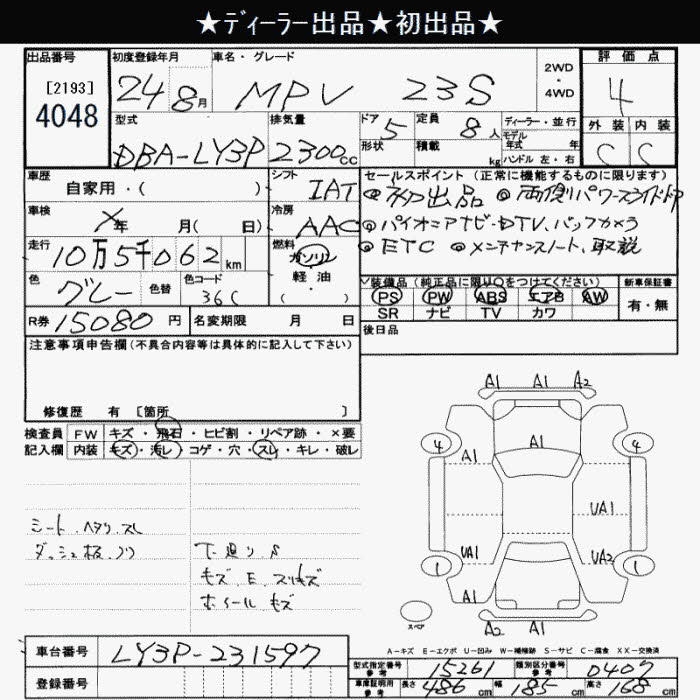 ★ディーラー出品★初出品★
出品番号
[2193]
4048
初度登録年月
24年8月
車名・グレード
MPV 23S
2WD
・
4WD
評価点
4
外装 内装
C C
型式
DBA-LY3P
排気量
2300cc
ドア
5
形状
定員
8人
積載
kg
ディーラー・並行
モデル
年式 年
ハンドル 左・右
車歴
自家用・( )
シフト
IAT
車検
年 月( 日)
冷房
AAC
走行
10万5千062km
燃料
ガソリン
・
軽油
・
( )
色
グレー
色替
色コード
36C
R券 15080円
名変期限 月 日
セールスポイント (正常に機能するものに限ります)
◎初出品 ◎両側パワースライドドア
◎パイオニアナビ・DTV.バックカメラ
◎ETC ◎メンテナンスノート、取説
装備品 (純正品に限り○をつけてください)
PS PW ABS エアB AW
SR ナビ TV カワ
新車保証書
有・無
後日品
注意事項申告欄(不具合内容等は具体的に記入して下さい)
修復歴 有 [箇所 ]
検査員
記入欄
FW キズ・飛石・ヒビ割・リペア跡・×要
内装 キズ・汚レ・コゲ・穴・スレ・キレ・破レ
シート.ヘタリ.スレ
ダッシュ板.ノリ
下廻りS
キズ.E.スリキズ
ホイールキズ
A1 A1 A2
4 4
A1 A1
UA1
UA1 UA2
1 1
A1
A2 A1
スペア
A-キズ E-エクボ U-凹み W-補修跡 S-サビ C-腐食 XX-交換済
車台番号 LY3P-231597
登録番号
型式指定番号
参考
15261
類別区分番号
参考
0407
車庫証明用
参考
長さ 486cm 幅 185cm 高さ 168cm